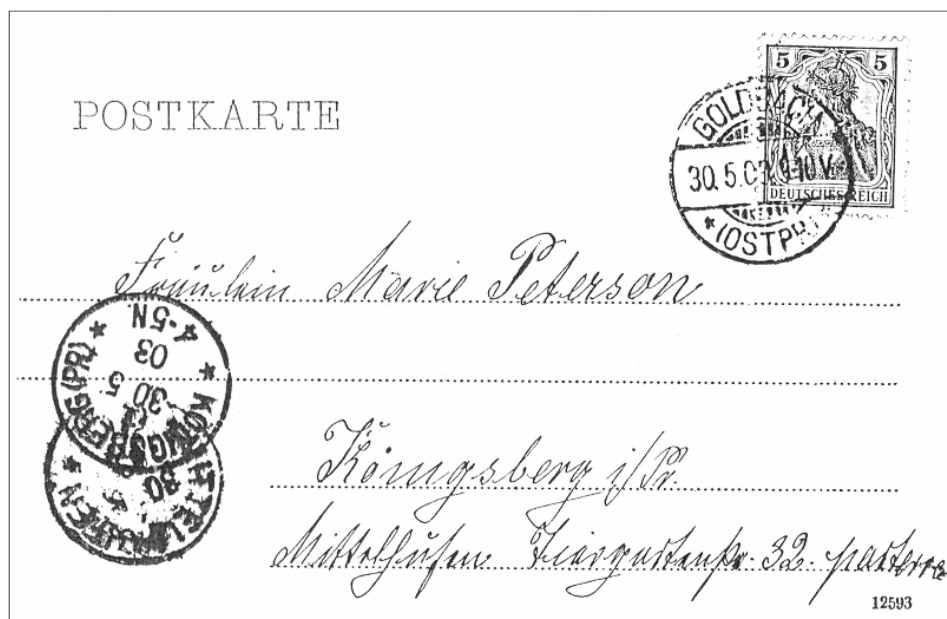 POSTKARTE
5 5
DEUTSCHES REICH
GOLDBACH
30.5.03. 9-10 V.
* (OSTPR.)
Fräulein Marie Peterson
* KÖNIGSBERG (PR) *
30 5
03
4-5N
MITTELHUFEN *
30
Königsberg i/Pr.
Mittelhufen Tiergartenstr. 32. parterre
12593